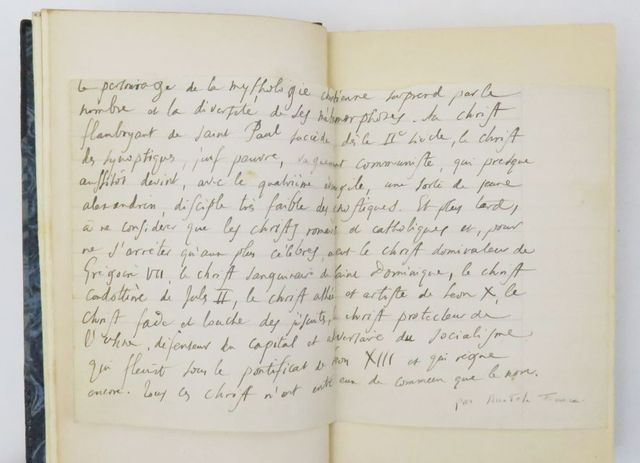 Le personnage de la mythologie chrétienne surprend par le
nombre et la diversité de ses métamorphoses. Au christ
flamboyant de saint Paul succède dès le IIe siècle, le christ
des synoptiques, juif pauvre, vaguement communiste, qui presque
aussitôt devint, avec le quatrième évangile, une sorte de jeune
alexandrin, disciple très faible des gnostiques. Et plus tard,
à ne considérer que les christs romains et catholiques et, pour
ne s'arrêter qu'aux plus célèbres, vient le christ dominateur de
Grégoire VII, le christ sanguinaire de saint Dominique, le christ
condottière de Jules II, le christ athée et artiste de Léon X, le
christ fade et louche des jésuites, christ protecteur de
l'usine, défenseur du capital et adversaire du socialisme
qui fleurit sous le pontificat de Léon XIII et qui règne
encore. Tous ces christ n'ont entre eux de commun que le nom.
par Anatole France